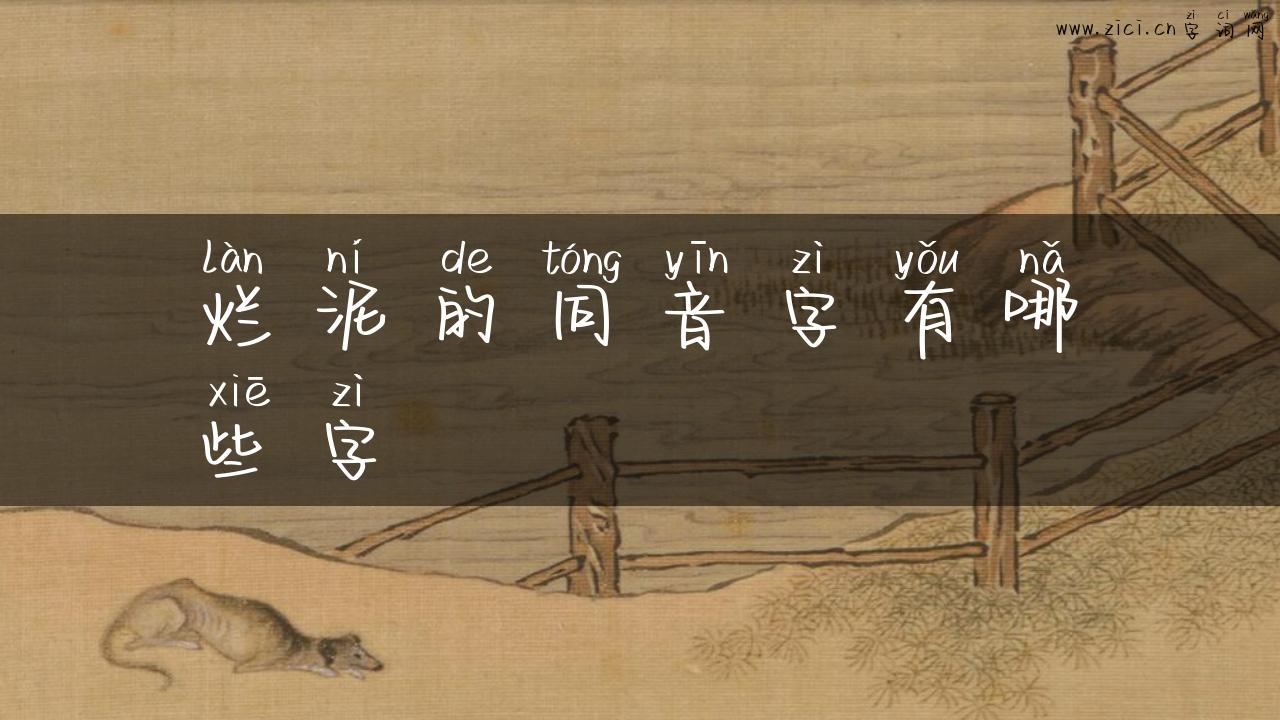 zì cí wǎng
www.zici.cn字词网
làn ní de tóng yīn zì yǒu nǎ
烂泥的同音字有哪
xiē zì
些字